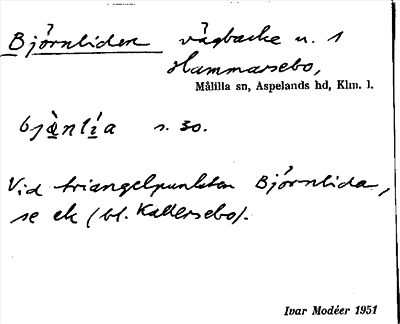 Björnliden vägbacke n. 1
Hammarsebo,
Målilla sn, Aspelands hd, Klm. l.
bjö̀nlía s. 30.
Vid triangelpunkten Björnlida,
se ek (bl. Kallersebo).
Ivar Modéer 1951